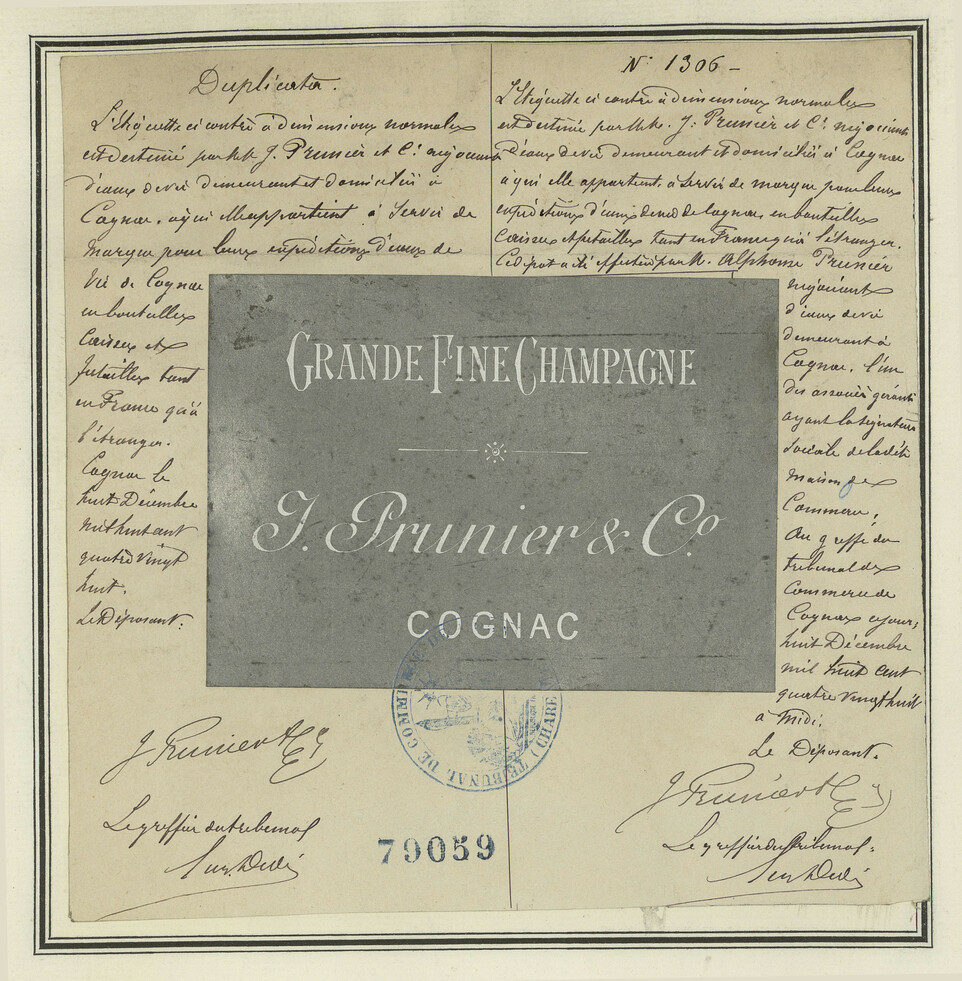 Duplicata.
L'Etiquette ci contre à dimensions normales
est destinée par MM. J. Prunier et Cie négociants
d'eaux de vie demeurant et domiciliés à
Cognac, à qui elle appartient à Servir de
marque pour leurs expéditions d'eaux de
Vie de Cognac
en bouteilles
Caisses et
futailles tant
en France qu'à
l'étranger.
Cognac le
huit Décembre
mil huit cent
quatre vingt
huit.
Le Déposant:
J Prunier & Cie
Le greffier du tribunal
N° 1306 -
L'Etiquette ci contre à dimensions normales
est destinée par MM. J. Prunier et Cie négociants
d'eaux de vie demeurant et domiciliés à Cognac
à qui elle appartient, à Servir de marque pour leurs
expéditions d'eaux de vie de Cognac en bouteilles
Caisses et futailles tant en France qu'à l'étranger.
Ce dépôt a été effectué par M. Alphonse Prunier
négociant
d'eaux de vie
demeurant à
Cognac, l'un
des associés gérants
ayant la signature
Sociale de la dite
maison de
Commerce,
Au greffe du
tribunal de
Commerce de
Cognac ce jour;
huit Décembre
mil huit cent
quatre vingt huit
à Midi.
Le Déposant.
J Prunier & Cie
Le greffier du tribunal.
GRANDE FINE CHAMPAGNE
J. Prunier & Co
COGNAC
TRIBUNAL DE (CHARE
79059